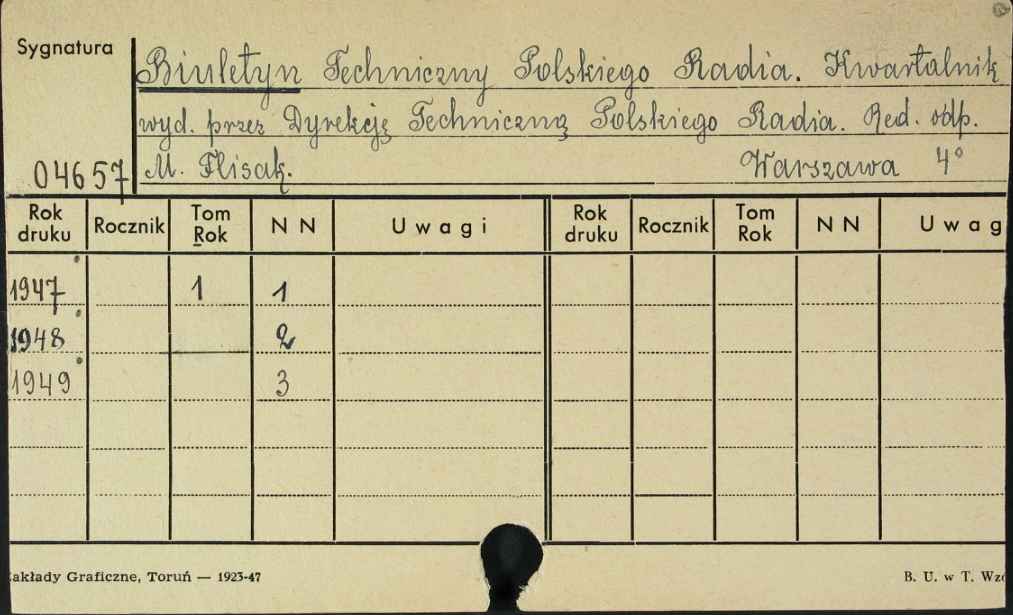 Sygnatura
Biuletyn Techniczny Polskiego Radia. Kwartalnik
wyd. przez Dyrekcję Techniczną Polskiego Radia. Red. odp.
04657 M. Flisak. Warszawa 4°
Rok druku Rocznik Tom Rok NN Uwagi Rok druku Rocznik Tom Rok NN Uwag
1947 1 1
1948 2
1949 3
akłady Graficzne, Toruń — 1923-47 B. U. w T. Wzó